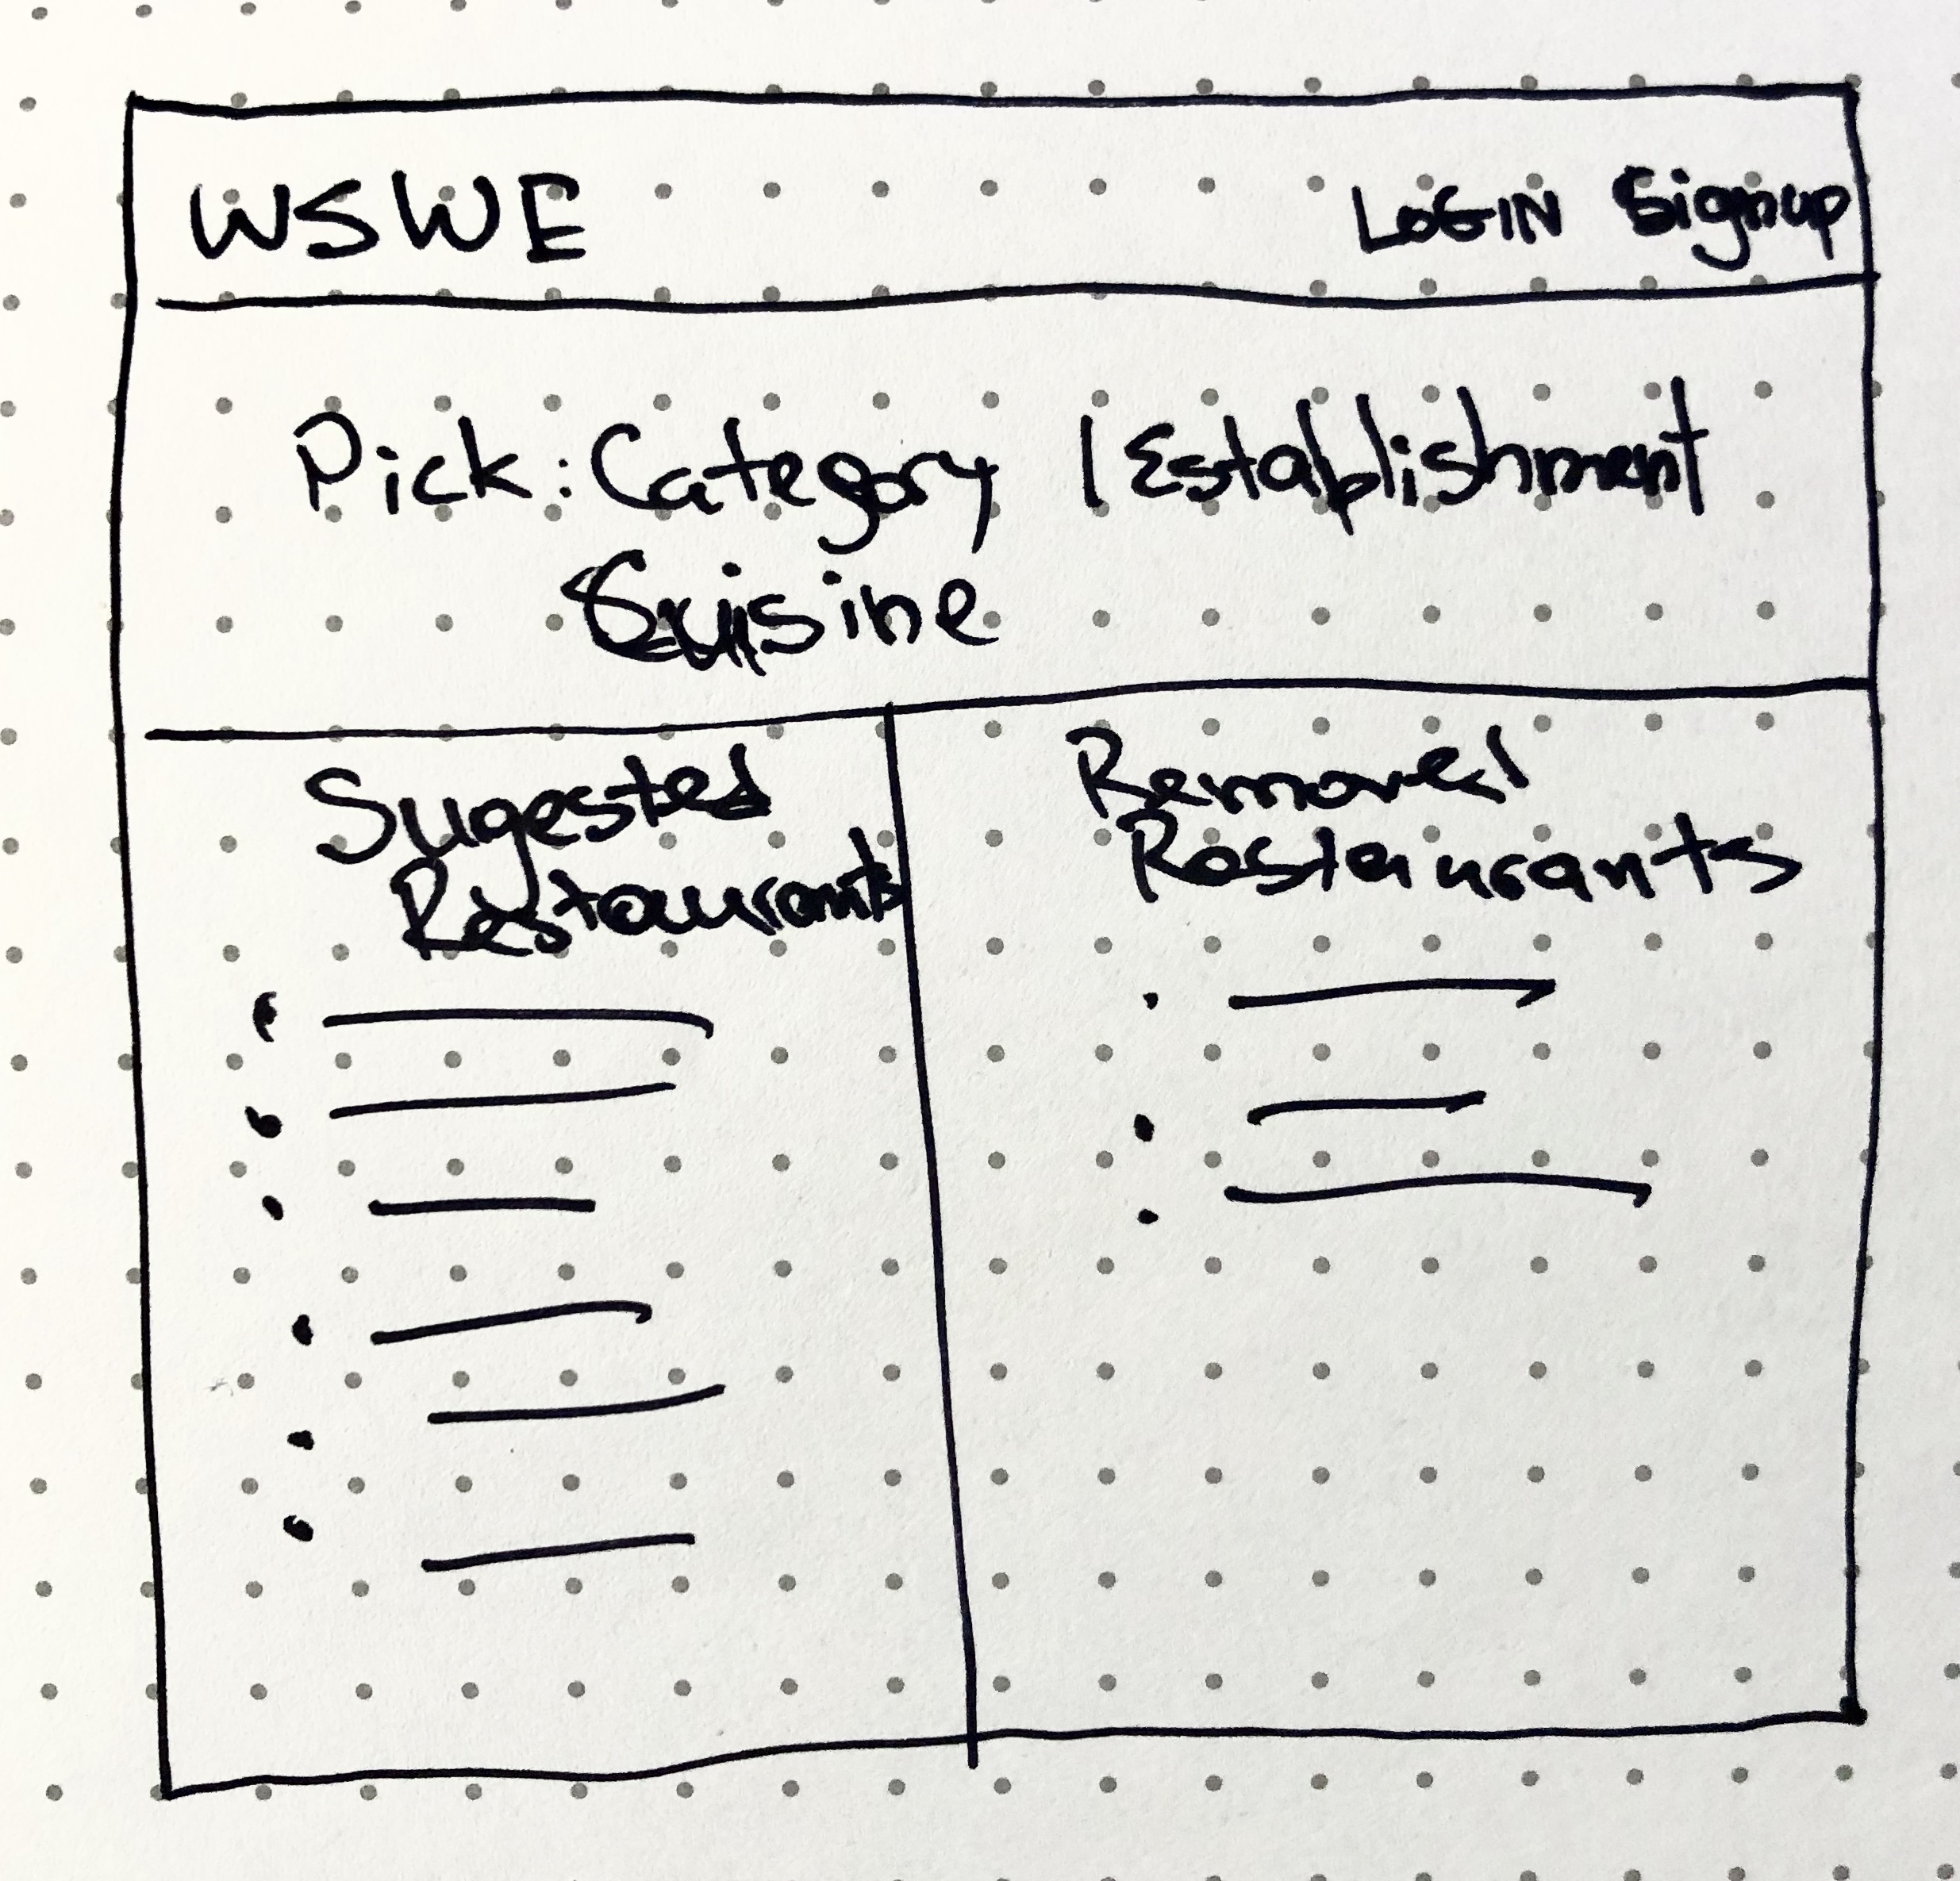 WSWE LOGIN Signup
Pick: Category | Establishment
Cuisine
Sugested
Restaurants
Removed
Restaurants